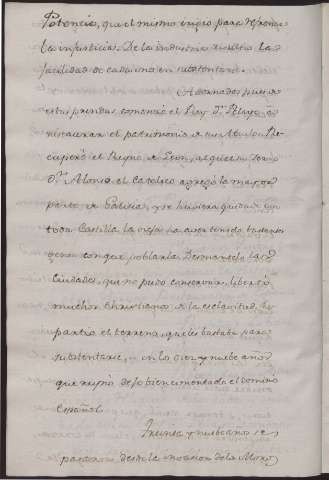 Potencia, que el mismo impio para refrenar
la injusticia. De la industria resulto la
facilidad de cada uno en substentarse.
Adornados pues de
estas prendas comenzó el Rey Dn. Pelayo a
restaurar el patrimonio de sus Abuelos. Re-
cuperó el Reyno de Leon, al que su Yerno
Dn. Alonso el Catolico agregó la mayor
parte de Galicia, y se huviera quedado con
toda Castilla la vieja a aver tenido bastante
gente con que poblarla. Desmanteló las
Ciudades, que no pudo conservar, libertó
muchos Christianos de la esclavitud, Re-
partio el terreno, que les bastaba para
substentarse, en los diez y nueve años
que reynó dexó bien cimentado el dominio
Español.
Treinta y nueve años se
pasaron desde la invasion de los Moros